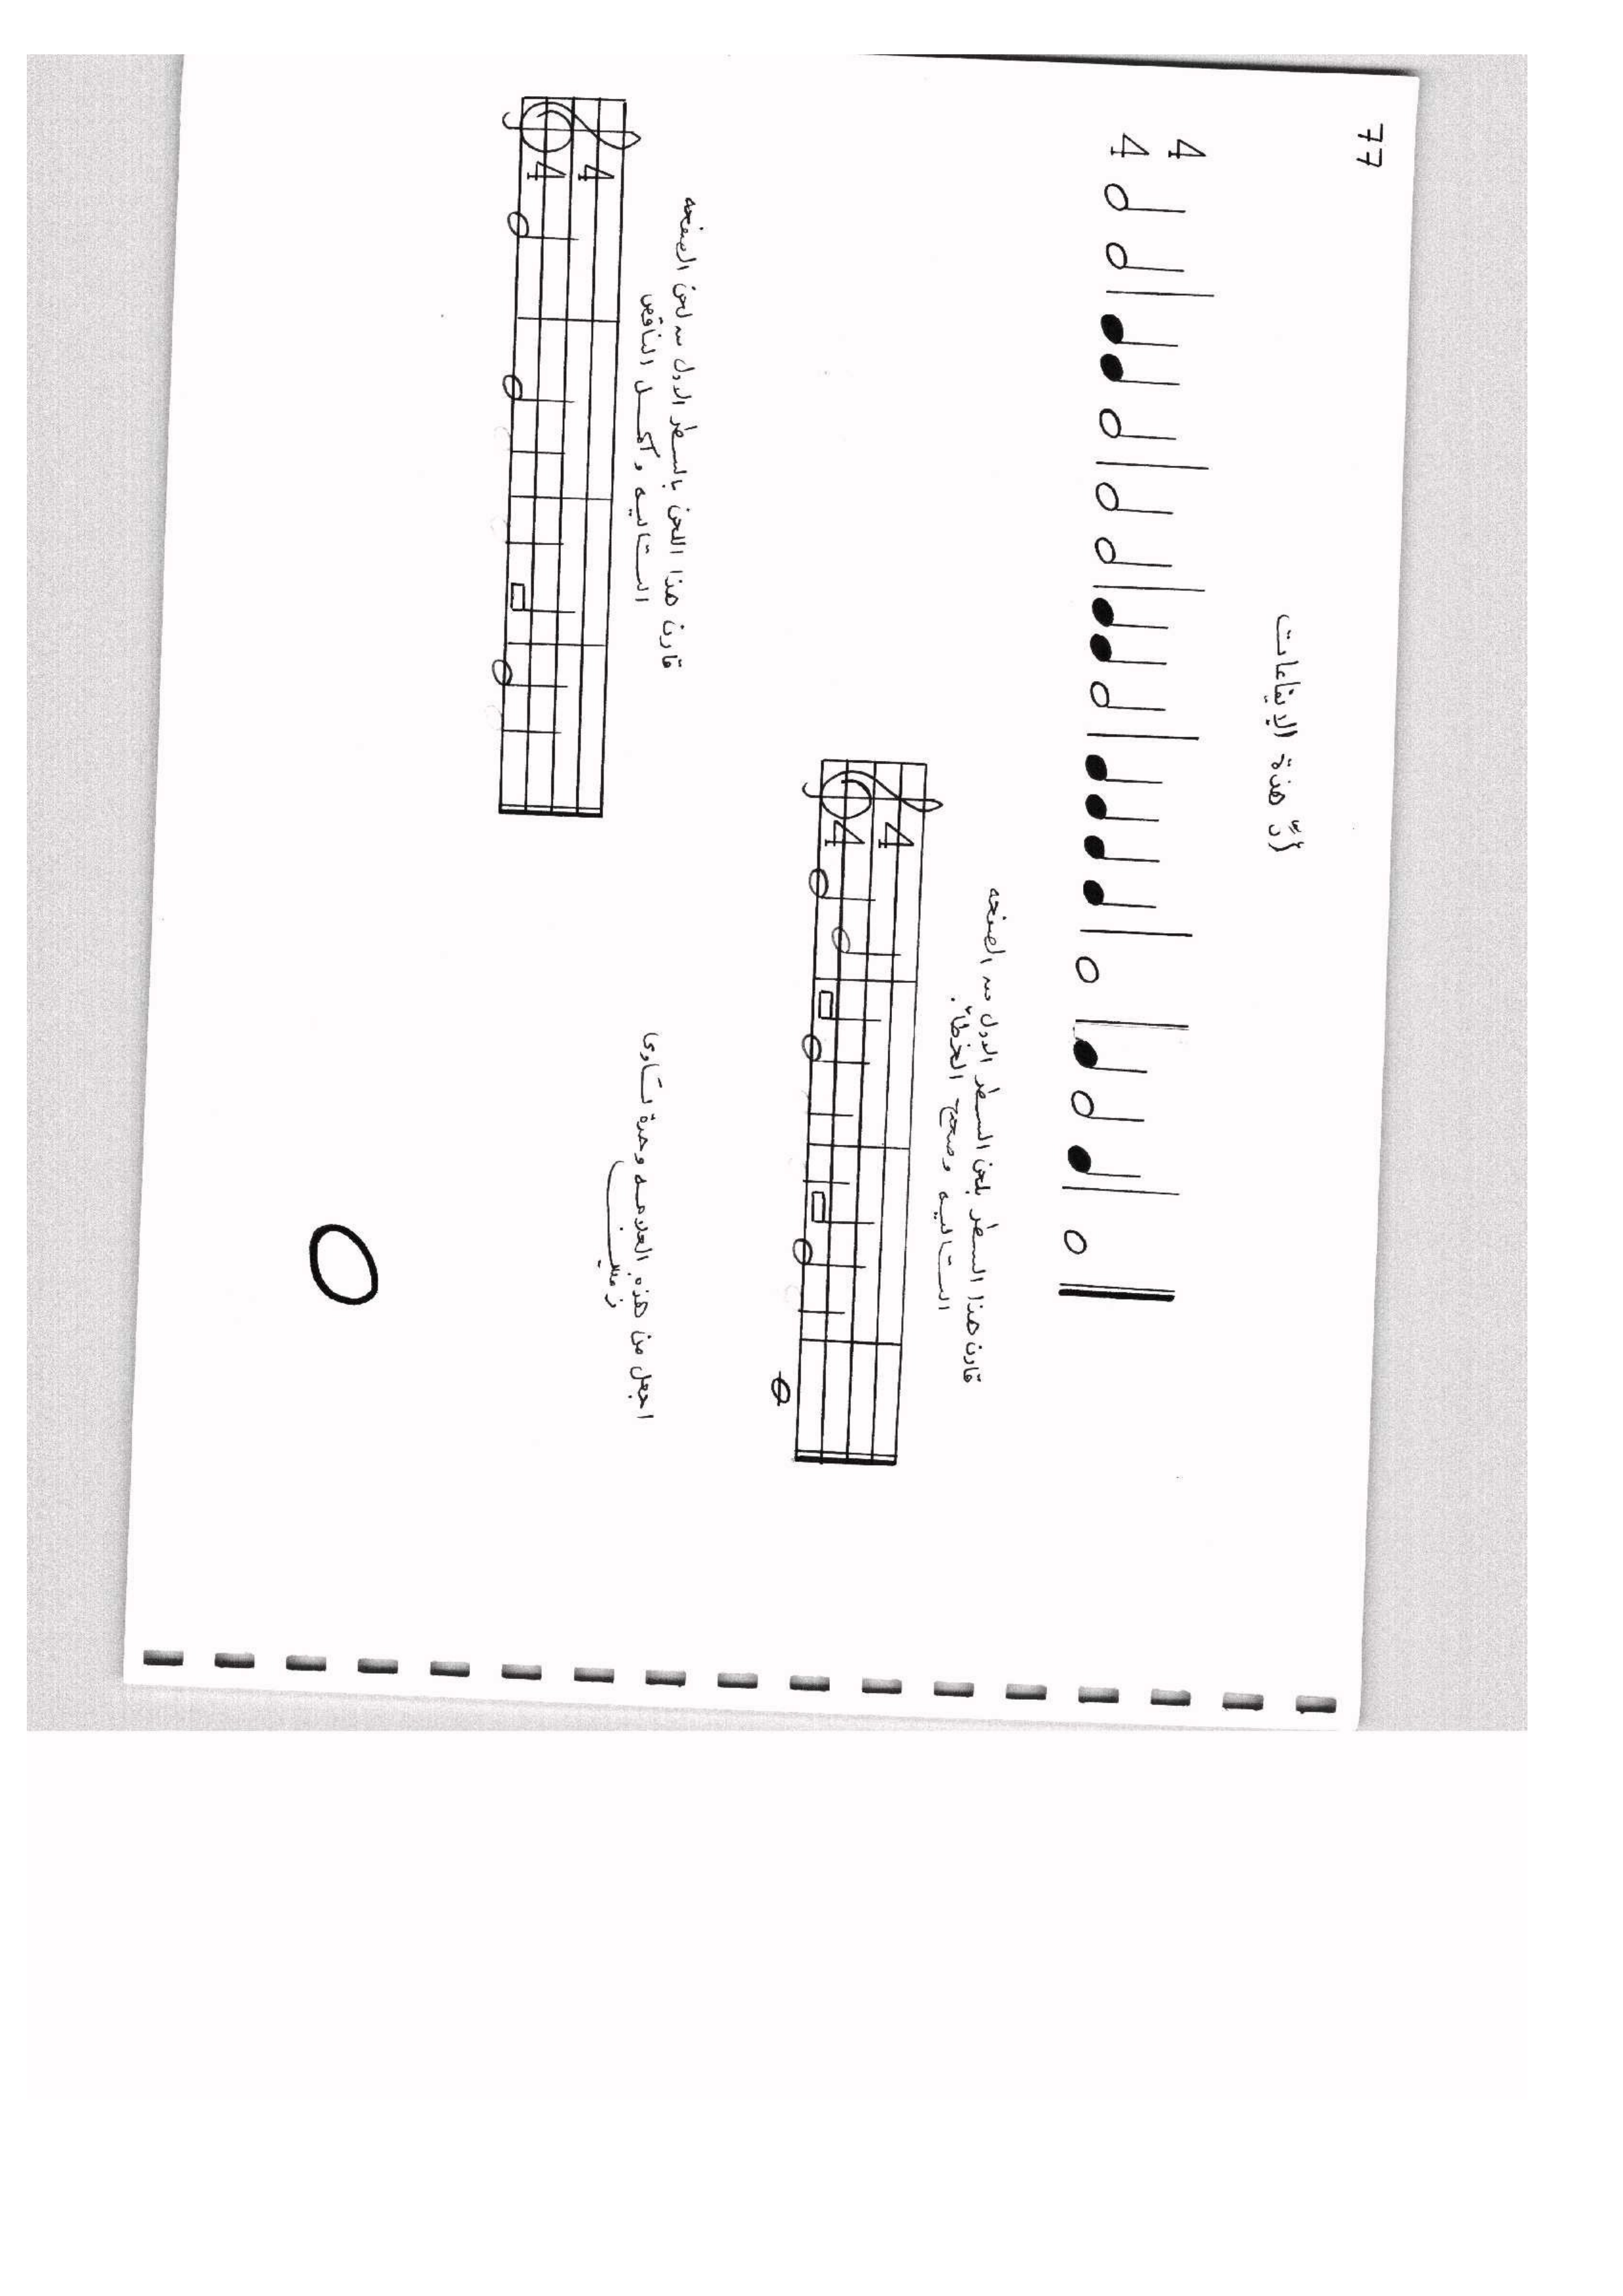 77
أدِّ هذة الإيقاعات
4
4
قارن هذا السطر بلحن السطر الاول من الصفحه
التاليه وصحح الخطأ.
4
4
قارن هذا اللحن بالسطر الاول من لحن الصفحه
التاليه وأكمل الناقص
4
4
اجعل من هذه العلامه وحدة تساوى
زمنين